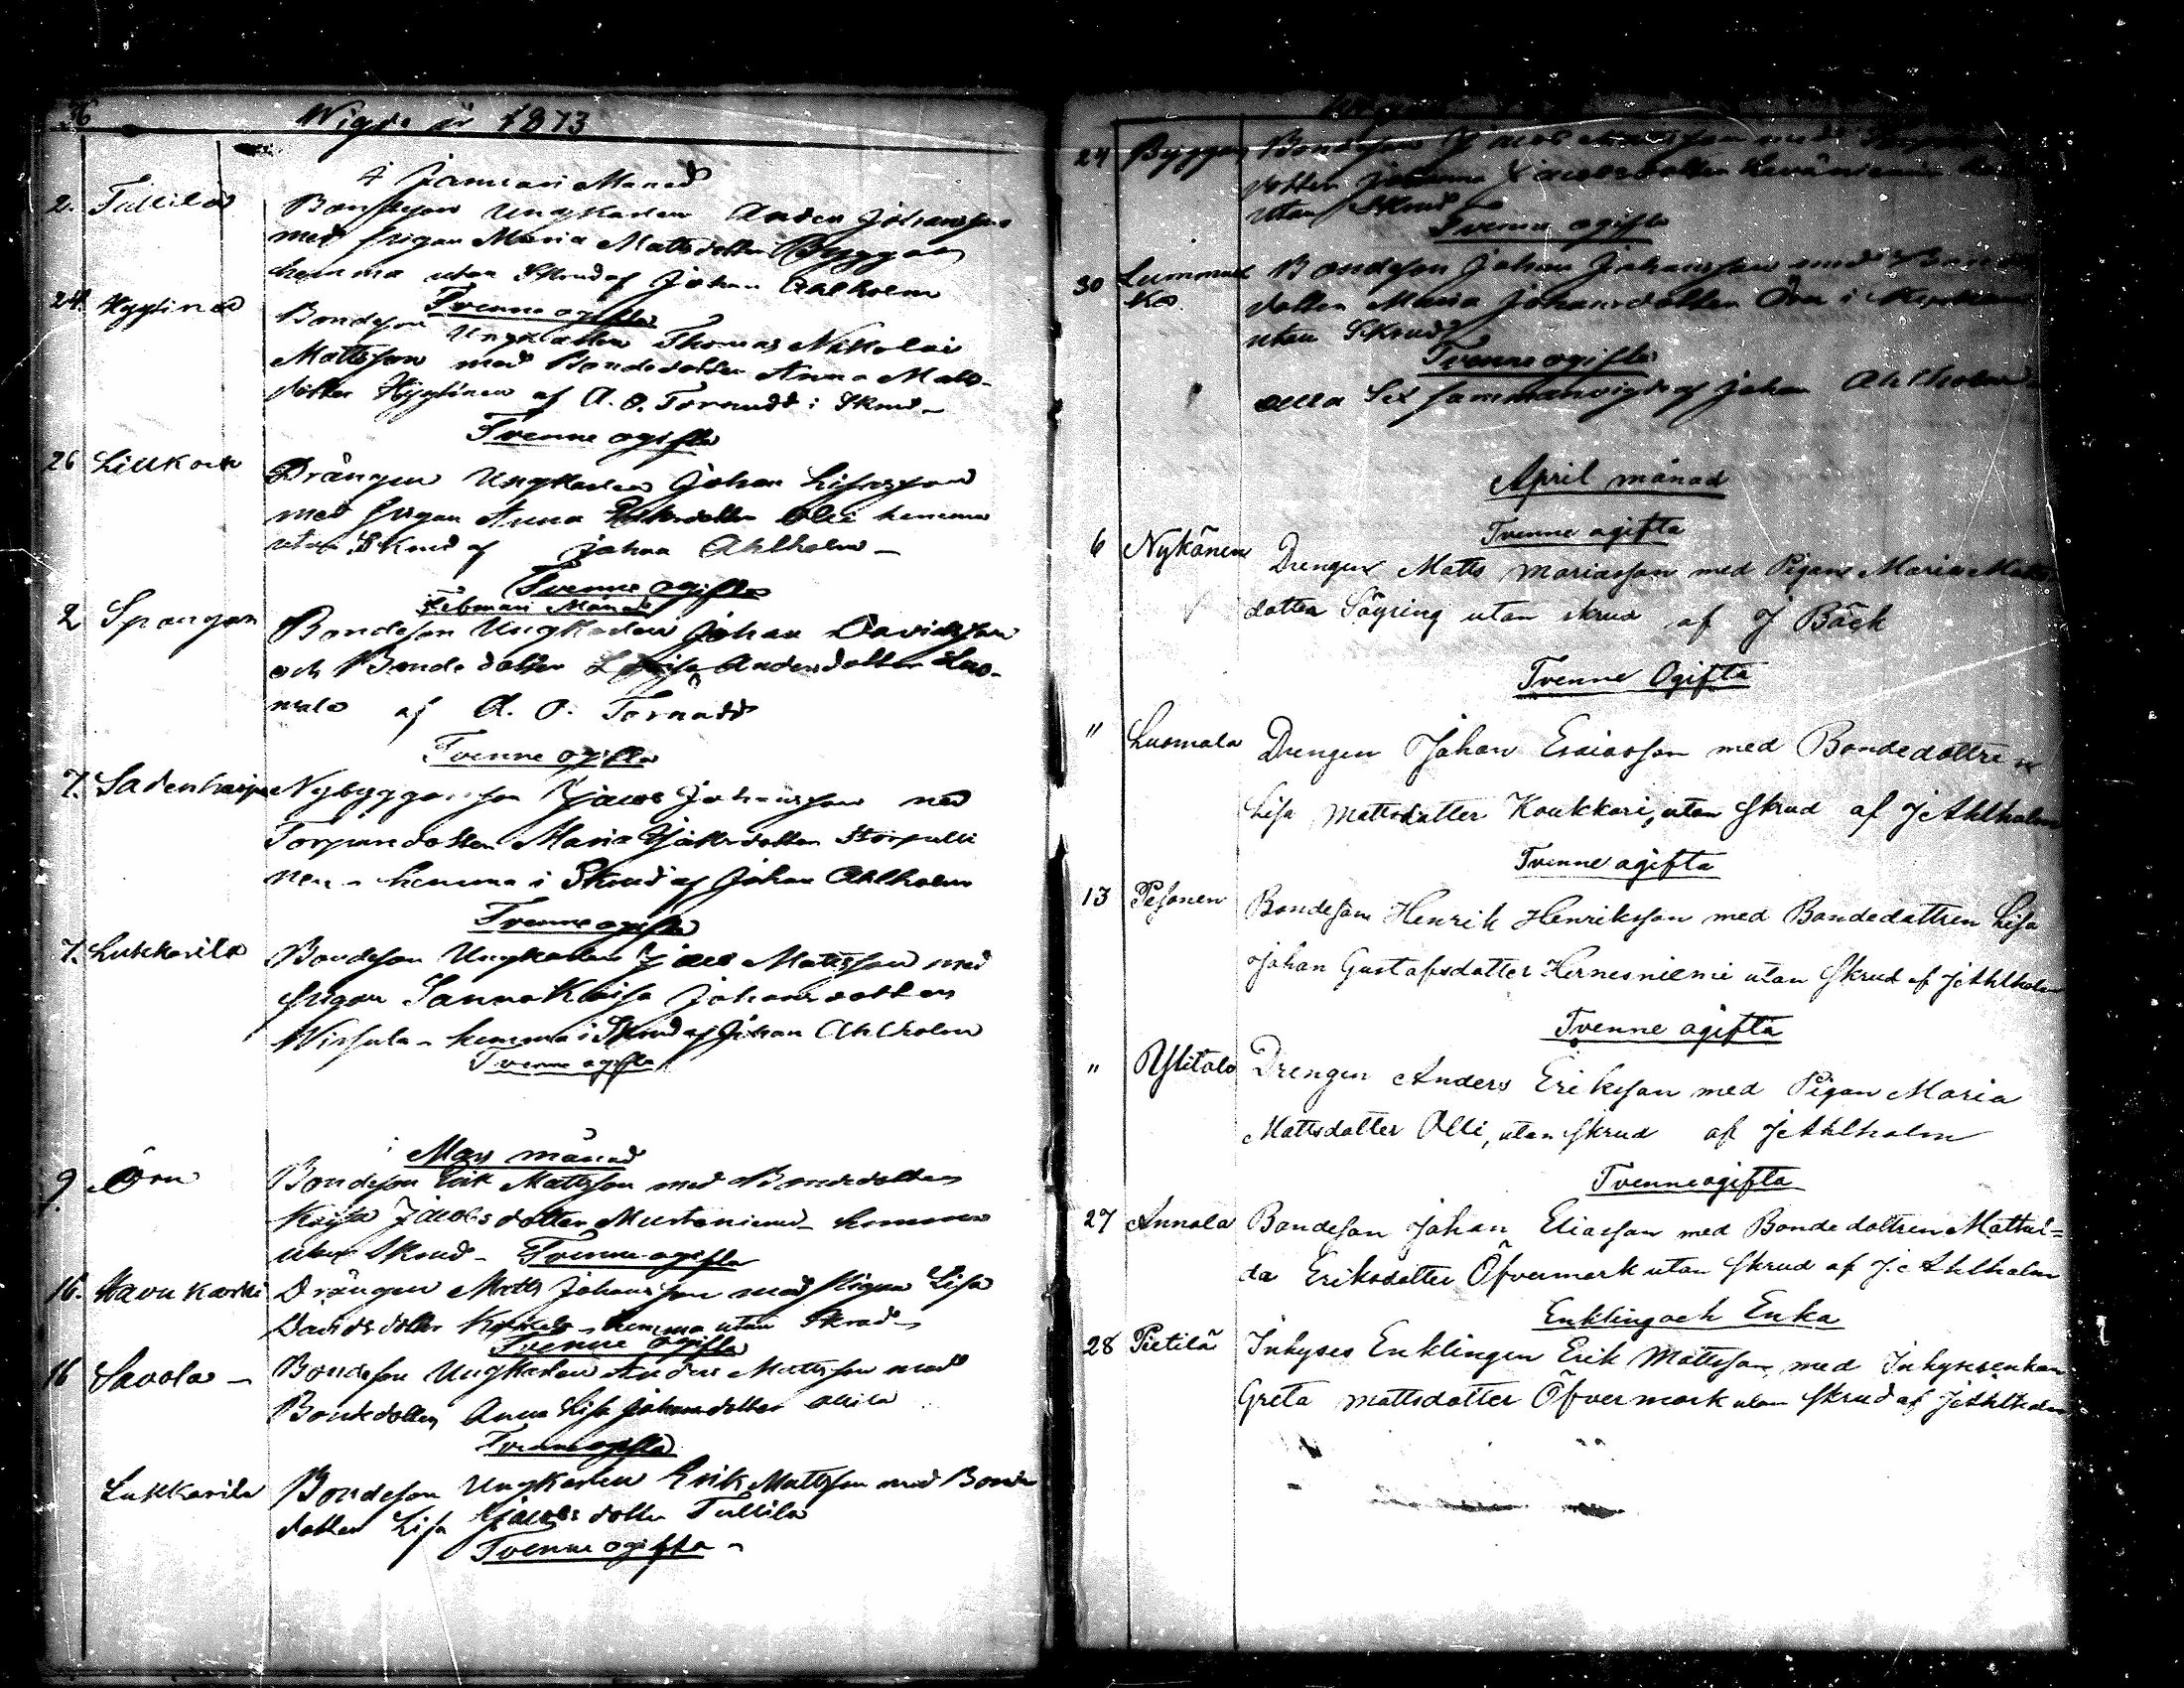 36
Wigde år 1873
i Januari Månad
2. Tullila Bondeson Ungkarlen Anders Johansson
med Pigan Maria Mattsdotter Byggar
hemma utan Skrud af Johan Ahlholm
Tvenne ogifta
24. Hyytinen Bondeson Ungkarlen Thomas Nikolai
Mattsson med Bondedotter Anna Matts-
dotter Hyytinen af A. O. Törnudd i Skrud -
Tvenne ogifta
26 Lillkock Drängen Ungkarlen Johan
med Pigan Anna Olli hemma
utan Skrud af Johan Ahlholm -
Tvenne ogifta
Februari Månad
2 Spangar Bondeson Ungkarlen Johan Davidsson
och Bonde dotter Lovisa Andersdotter Luo-
mala af A. O. Törnudd
Tvenne ogifta
7. Nybyggarson Jacob Johansson med
Torparedotter Maria
nen - hemma i Skrud af Johan Ahlholm
Tvenne ogifta
7. Lukkarila Bondeson Ungkarlen Jacob Mattsson med
Pigan Sanna Kaisa Johansdotter
hemma i Skrud af Johan Ahlholm
Tvenne ogifta
i Mars månad
9 Örn Bondeson Erik Mattsson med Bondedotter
Kajsa Jacobsdotter Mustaniemi - hemma
utan Skrud - Tvenne ogifta
16. Havukoski Drängen Matts Johansson med Pigan Lisa
Davidsdotter hemma utan Skrud -
Tvenne ogifta
16 Savola - Bondeson Ungkarlen Anders Mattsson med
Bondedotter Anna Lisa Johansdotter Ollila
Tvenne ogifta
Lukkarila Bondeson Ungkarlen Erik Mattsson med Bonde
dotter Lisa Jacobsdotter Tullila
Tvenne ogifta -
24 Byggar Bondeson Jacob med
dotter Johanna Jacobsdotter
utan Skrud -
Tvenne ogifta
30 Lummuk Bondeson Johan Johansson med Bonde
ka. dotter Maria Johansdotter Örn i
utan Skrud
Tvenne ogifta
alla Sex sammanvigde af Johan Ahlholm
April månad
Tvenne ogifta
6 Nykänen Drengen Matts Mariasson med Pigan Maria Matts
dotter Söyring utan skrud af J Bäck
Tvenne Ogifta
" Luomala Drengen Johan Esaiasson med Bondedottren
Lisa Mattsdotter Koukkari, utan Skrud af J Ahlholm
Tvenne ogifta
13 Pesonen Bondeson Henrik Henriksson med Bondedottren Lisa
Johan Gustafsdotter Hernesniemi utan Skrud af J Ahlholm
Tvenne ogifta
" Ylitalo Drengen Anders Eriksson med Pigan Maria
Mattsdotter Olli, utan Skrud af J Ahlholm
Tvenne ogifta
27 Annala Bondeson Johan Eliasson med Bonde dottren Mathil=
da Eriksdotter Öfvermark utan Skrud af J. Ahlholm
Enkling och Enka
28 Pietilä Inhyses Enklingen Erik Mattsson, med Inhysesenkan
Greta Mattsdotter Öfvermark utan Skrud af J Ahlholm